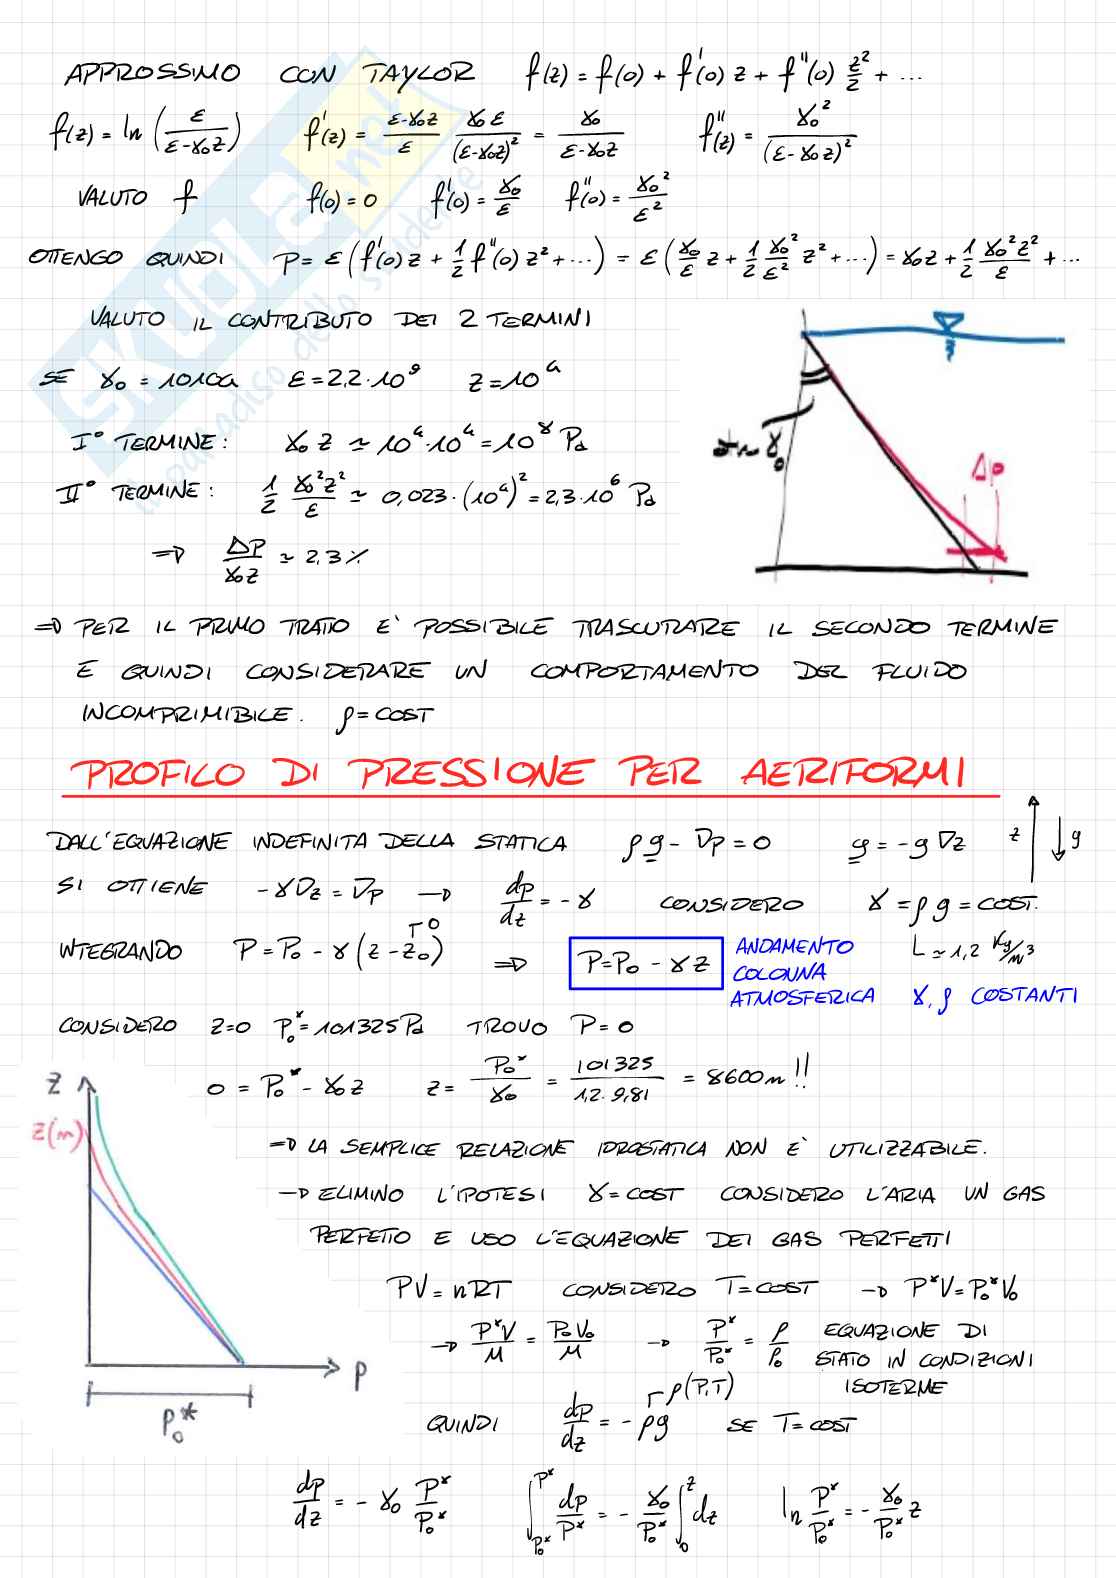 APPROSSIMO CON TAYLOR f(z) = f(0) + f'(0) z + f''(0) z²/2 + ...
f(z) = ln (ε/(ε-γ₀z)) f'(z) = (ε-γ₀z)/ε γ₀ε/(ε-γ₀z)² = γ₀/(ε-γ₀z) f''(z) = γ₀²/(ε-γ₀z)²
VALUTO f f(0) = 0 f'(0) = γ₀/ε f''(0) = γ₀²/ε²
OTTENGO QUINDI P = ε (f'(0) z + 1/2 f''(0) z² + ...) = ε (γ₀/ε z + 1/2 γ₀²/ε² z² + ...) = γ₀z + 1/2 γ₀²z²/ε + ...
VALUTO IL CONTRIBUTO DEI 2 TERMINI
SE γ₀ = 10104 ε = 2,2·10⁹ z = 10⁴
I° TERMINE: γ₀ z ≃ 10⁴·10⁴ = 10⁸ Pa
II° TERMINE: 1/2 γ₀²z²/ε ≃ 0,023·(10⁴)² = 2,3·10⁶ Pa
⇒ ΔP/γ₀z ≃ 2,3%
γ₀
Δp
⇒ PER IL PRIMO TRATO E' POSSIBILE TRASCURARE IL SECONDO TERMINE
E QUINDI CONSIDERARE UN COMPORTAMENTO DEL FLUIDO
INCOMPRIMIBILE. ρ = COST
PROFILO DI PRESSIONE PER AERIFORMI
DALL'EQUAZIONE INDEFINITA DELLA STATICA ρg - ∇p = 0 g = -g ∇z z g
SI OTTIENE -γ∇z = ∇p → dp/dz = -γ CONSIDERO γ = ρg = COST.
INTEGRANDO P = P₀ - γ (z - z₀) 0 ⇒ P = P₀ - γ z ANDAMENTO COLONNA ATMOSFERICA ≃ 1,2 Kg/m³
γ, ρ COSTANTI
CONSIDERO z=0 P₀* = 101325 Pa TROVO P = 0
0 = P₀* - γ₀ z z = P₀*/γ₀ = 101325/(1,2·9,81) = 8600 m!!
z
z(m)
p
P₀*
⇒ LA SEMPLICE RELAZIONE IDROSTATICA NON E' UTILIZZABILE.
→ ELIMINO L'IPOTESI γ = COST CONSIDERO L'ARIA UN GAS
PERFETTO E USO L'EQUAZIONE DEI GAS PERFETTI
PV = nRT CONSIDERO T = COST → P*V = P₀*V₀
→ P*V/M = P₀V₀/M → P*/P₀* = ρ/ρ₀ EQUAZIONE DI STATO IN CONDIZIONI ISOTERME
QUINDI dp/dz = -ρg ρ(P,T) SE T = COST
dp/dz = -γ₀ P*/P₀* ∫_{P₀*}^{P*} dp/P* = -γ₀/P₀* ∫₀^z dz ln P*/P₀* = -γ₀/P₀* z
SKUOLA.net